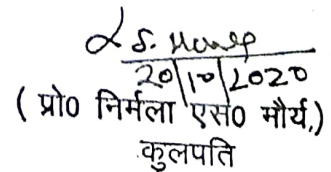 20/10/2020
( प्रो0 निर्मला एस0 मौर्य,)
कुलपति